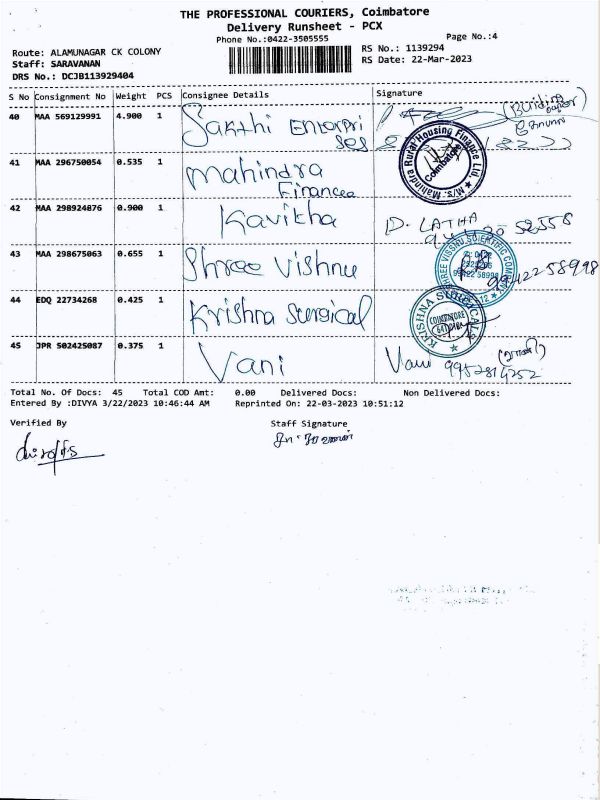 THE PROFESSIONAL COURIERS, Coimbatore
Delivery Runsheet - PCX
Phone No.:0422-3505555
Page No.:4
Route: ALAMUNAGAR CK COLONY
RS No.: 1139294
Staff: SARAVANAN
RS Date: 22-Mar-2023
DRS No.: DCJB113929404
S No Consignment No Weight PCS Consignee Details Signature
40 MAA 569129991 4.900 1 Sakthi Enterprises
41 MAA 296750054 0.535 1 Mahindra Finance
Mahindra Rural Housing Finance Ltd. M/s.
Coimbatore
42 MAA 298924876 0.900 1 Kavitha D. LATHA
43 MAA 298675063 0.655 1 Shree Vishnu 99422 58998
44 EDQ 22734268 0.425 1 Krishna Surgical
KRISHNA SURGICALS
COIMBATORE
45 JPR 502425087 0.375 1 Vani Vani (வாணி)
9952814252
Total No. Of Docs: 45 Total COD Amt: 0.00 Delivered Docs: Non Delivered Docs:
Entered By :DIVYA 3/22/2023 10:46:44 AM Reprinted On: 22-03-2023 10:51:12
Verified By Staff Signature